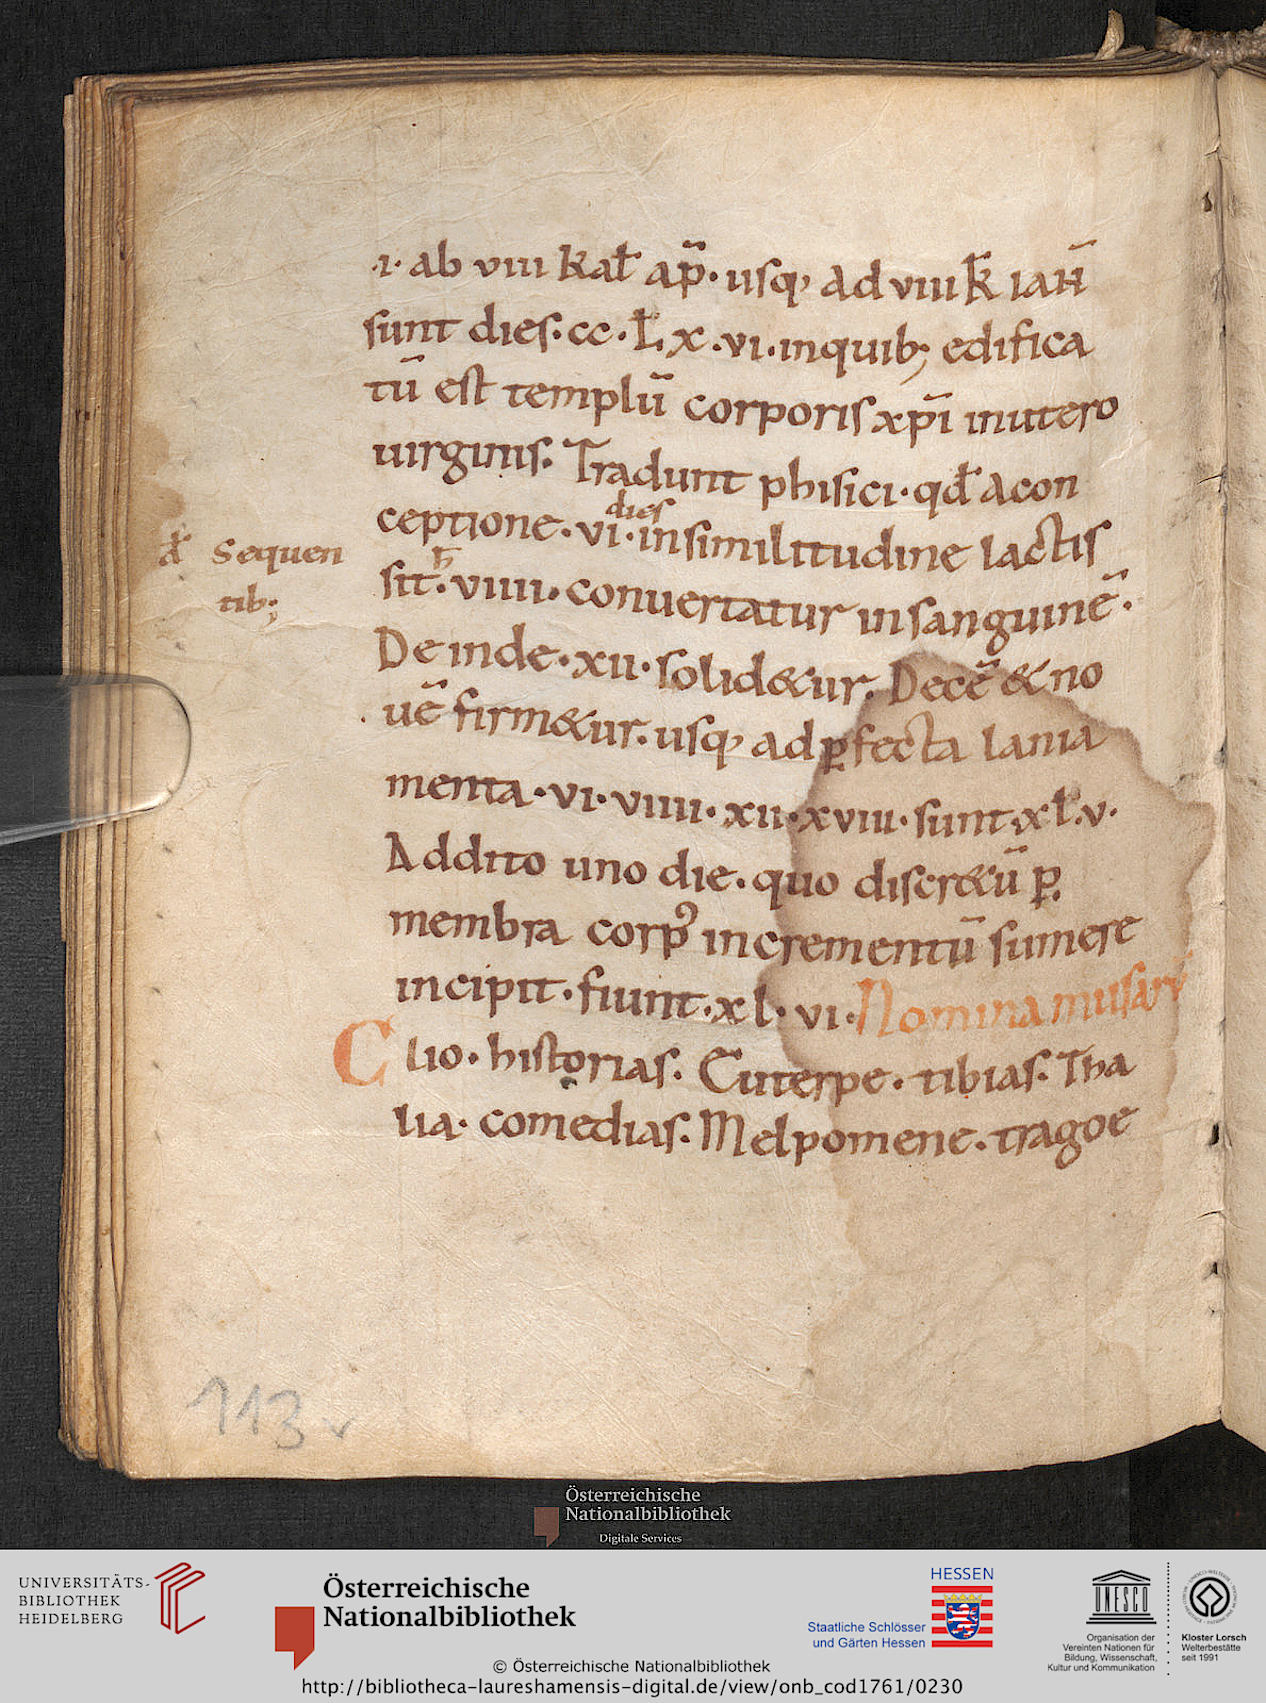 ·i· ab viii kaƚ ap̄· usq; ad viii k̄ ian̄
sunt dies· cc· ƚ x· vi· inquib; edifica
tū est templū corporis xp̄i inutero
uirginis· Tradunt phisici· qđ acon
dies
ceptione· vi· insimilitudine lactis
h̄
sit· viiii· conuertatur insanguinē·
Sequen
tib;
Deinde· xii· solid&ur· Decē & no
uē firm&ur· usq; ad ꝑfecta linia
menta· vi· viiii· xii· xviii· sunt· xl· v·
Addito uno die· quo discr&ū ꝑ
membra corp᾿ incrementū sumere
incipit· fiunt· xl· vi· Nomina musarū
Clio· historias· Euterpe· tibias· Tha
lia· comedias· Melpomene· tragoe
113v
Österreichische
Nationalbibliothek
Digitale Services
UNIVERSITÄTS-
BIBLIOTHEK
HEIDELBERG
Österreichische
Nationalbibliothek
HESSEN
Staatliche Schlösser
und Gärten Hessen
UNESCO
Organisation der
Vereinten Nationen für
Bildung, Wissenschaft,
Kultur und Kommunikation
Kloster Lorsch
Welterbestätte
seit 1991
© Österreichische Nationalbibliothek
http://bibliotheca-laureshamensis-digital.de/view/onb_cod1761/0230